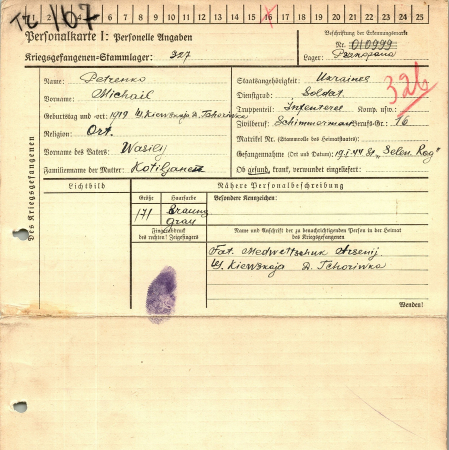 1 2 3 4 5 6 7 8 9 10 11 12 13 14 15 16 17 18 19 20 21 22 23 24 25
167
Personalkarte I: Personelle Angaben
Kriegsgefangenen-Stammlager: 327
Beschriftung der Erkennungsmarke
Nr. 010999
Lager:
326
Des Kriegsgefangenen
Name: Petrenko
Vorname: Michail
Geburtstag und -ort: 1919 W. Kiewskaja D. Tchoriwka
Religion: Ort.
Vorname des Vaters: Wasilij
Familienname der Mutter:
Staatsangehörigkeit: Ukrainer
Dienstgrad: Soldat.
Truppenteil: Infanterei Komp. usw.:
Zivilberuf: Schimmerman Berufs-Gr.: 16
Matrikel Nr. (Stammrolle des Heimatstaates):
Gefangennahme (Ort und Datum): "Selen. Rog"
Ob gesund, krank, verwundet eingeliefert:
Lichtbild
Nähere Personalbeschreibung
Größe Haarfarbe Besondere Kennzeichen:
171 Braun
Grau
Fingerabdruck
des rechten! Zeigefingers
Name und Anschrift der zu benachrichtigenden Person in der Heimat
des Kriegsgefangenen
Fat. Medwetschuk Arsenij
W. Kiewskaja D. Tchoriwka
Wenden!